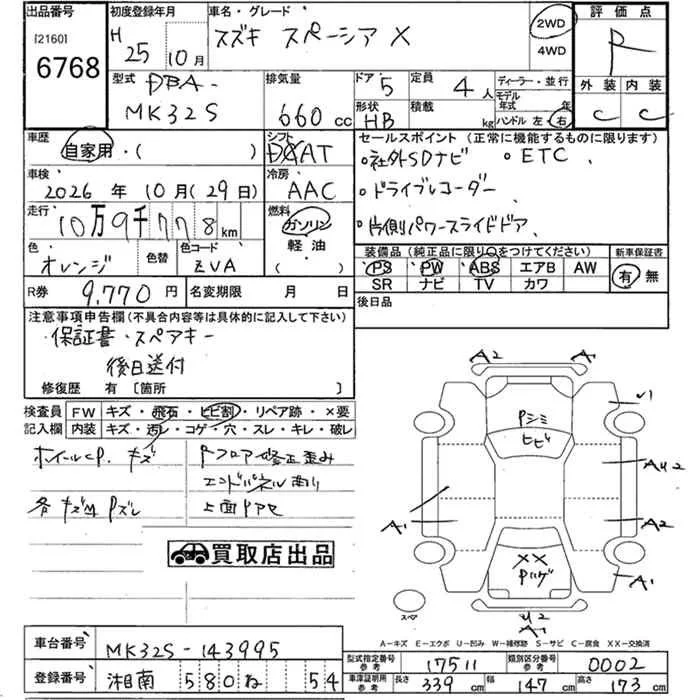 出品番号
[2160]
6768
初度登録年月
H 25 10 月
車名・グレード
スズキ スペーシア X
2WD
4WD
評価点
R
外装 内装
C C
型式 DBA-
MK32S
排気量
660 cc
ドア 5
定員 4 人
形状 HB
積載 kg
ディーラー・並行
モデル年式 年
ハンドル 左・右
車歴
自家用・( )
シフト
AT
車検
2026 年 10 月 (29 日)
冷房
AAC
走行
10万9千778 km
燃料
ガソリン
軽油
( )
色 オレンジ
色替
色コード ZVA
R券 9,770 円
名変期限 月 日
セールスポイント (正常に機能するものに限ります)
・社外SDナビ ・ETC、
・ドライブレコーダー、
・片側パワースライドドア、
装備品 (純正品に限り○をつけてください)
PS PW ABS エアB AW
SR ナビ TV カワ
新車保証書
有 無
後日品
注意事項申告欄 (不具合内容等は具体的に記入して下さい)
保証書・スペアキー
後日送付
修復歴 有 [箇所 ]
検査員記入欄
FW キズ・飛石・ヒビ割・リペア跡・×要
内装 キズ・汚レ・コゲ・穴・スレ・キレ・破レ
ホイールCP. キズ
Rフロア修正歪み
エンドパネル曲り
各キズ
買取店出品
A2 A
Pシミ
ヒビ
AU2
A1 A2
××
Pハゲ
A1
U2
A1
スペア
A-キズ E-エクボ U-凹み W-補修跡 S-サビ C-腐食 XX-交換済
車台番号 MK32S-143995
登録番号 湘南 580 ね 54
型式指定番号 参考 17511
類別区分番号 参考 0002
車庫証明用 参考 長さ 339 cm 幅 147 cm 高さ 173 cm